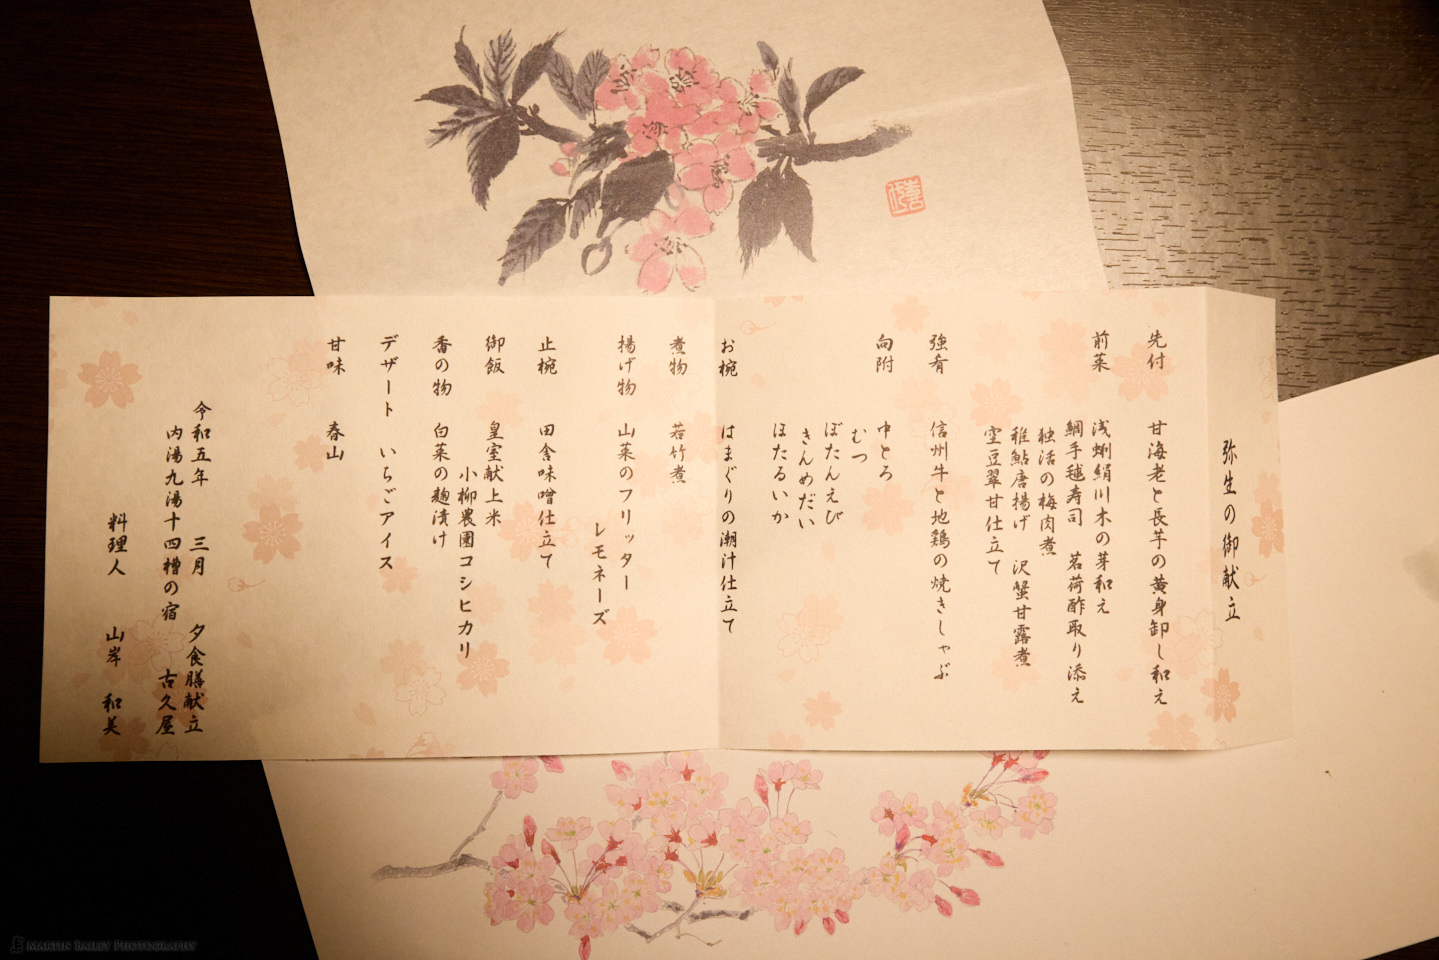 弥生の御献立
先付 甘海老と長芋の黄身卸し和え
前菜 浅蜊絹川木の芽和え
鯛手毬寿司 茗荷酢取り添え
独活の梅肉煮
稚鮎唐揚げ 沢蟹甘露煮
空豆翠甘仕立て
強肴 信州牛と地鶏の焼きしゃぶ
向附 中とろ
むつ
ぼたんえび
きんめだい
ほたるいか
お椀 はまぐりの潮汁仕立て
煮物 若竹煮
揚げ物 山菜のフリッター
レモネーズ
止椀 田舎味噌仕立て
御飯 皇室献上米
小柳農園コシヒカリ
香の物 白菜の麹漬け
デザート いちごアイス
甘味 春山
令和五年 三月 夕食膳献立
内湯九湯十四槽の宿 古久屋
料理人 山岸 和美
MARTIN BAILEY PHOTOGRAPHY